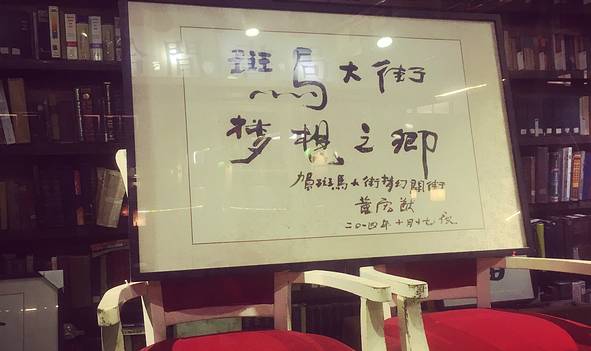 斑馬大街
梦想之鄉
賀斑馬大街梦幻開街
董宏猷
二〇一四年十月十七夜